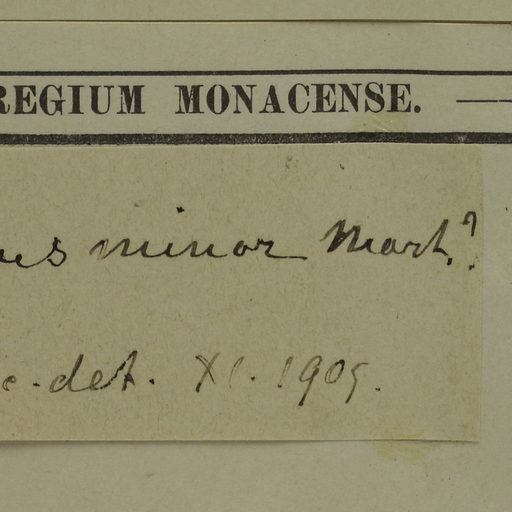 REGIUM MONACENSE.
us minor Mart.?
c. det. XI. 1905.